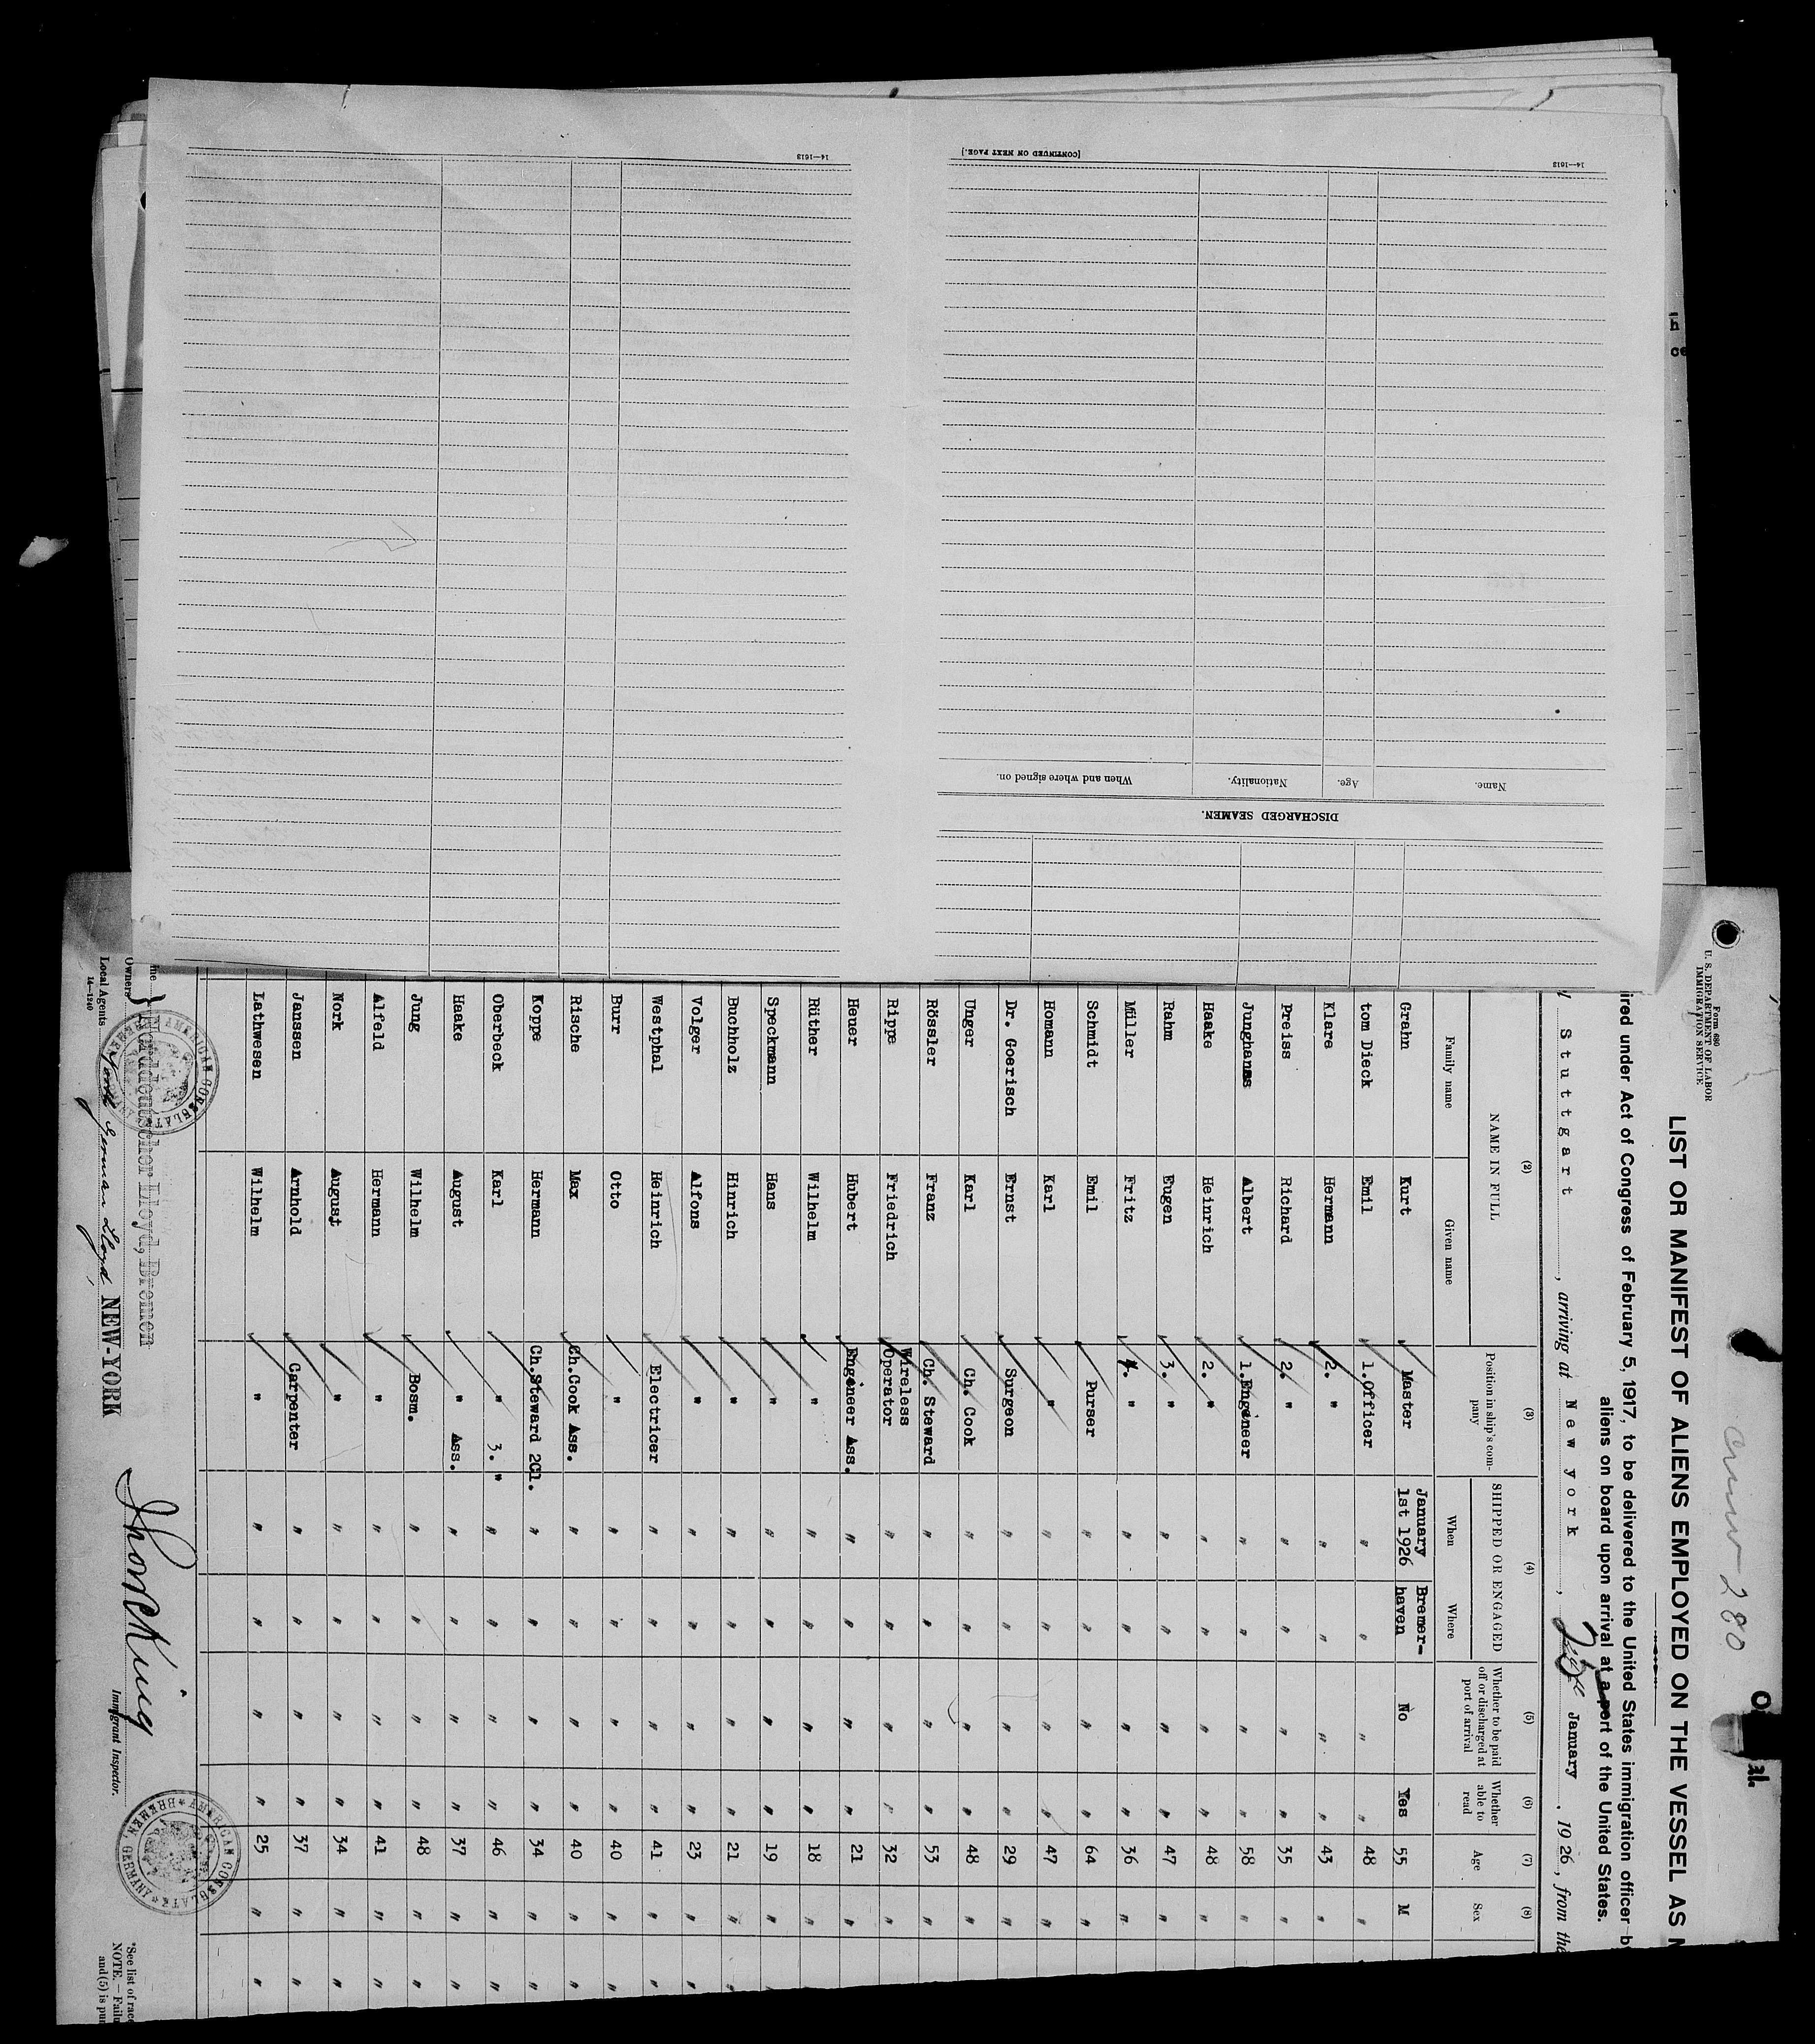 14—1613
[CONTINUED ON NEXT PAGE.]
14—1613
Name.
Age.
Nationality.
When and where signed on.
DISCHARGED SEAMEN.
Form 680
U. S. DEPARTMENT OF LABOR
IMMIGRATION SERVICE
280
LIST OR MANIFEST OF ALIENS EMPLOYED ON THE VESSEL AS
under Act of Congress of February 5, 1917, to be delivered to the United States immigration officer
aliens on board upon arrival at a port of the United States.
Stuttgart, arriving at New york, January, 1926, from the
(2) (3) (4) (5) (6) (7) (8)
NAME IN FULL Position in ship's company SHIPPED OR ENGAGED Whether to be paid off or discharged at port of arrival Whether able to read Age Sex
Family name Given name When Where
Grahn Kurt Master January 1st 1926 Bremerhaven No Yes 55 M
tom Dieck Emil 1.Officer " " " " 48 "
Klare Hermann 2. " " " " " 43 "
Preiss Richard 2. " " " " " 35 "
Junghanss Albert 1.Engineer " " " " 58 "
Haake Heinrich 2. " " " " " 48 "
Rahm Eugen 3. " " " " " 47 "
Müller Fritz 4. " " " " " 36 "
Schmidt Emil Purser " " " " 64 "
Homann Karl " " " " " 47 "
Dr. Goerisch Ernst Surgeon " " " " 29 "
Unger Karl Ch. Cook " " " " 48 "
Rössler Franz Ch. Steward " " " " 53 "
Rippe Friedrich Wireless Operator " " " " 32 "
Heuer Hubert Engineer Ass. " " " " 21 "
Rüther Wilhelm " " " " " 18 "
Speckmann Hans " " " " " 19 "
Buchholz Hinrich " " " " " 21 "
Volger Alfons " " " " " 23 "
Westphal Heinrich Electricer " " " " 41 "
Burr Otto " " " " " 40 "
Rische Max Ch.Cook Ass. " " " " 40 "
Koppe Hermann Ch.Steward 2Cl. " " " " 34 "
Oberbeck Karl " 3. " " " " " 46 "
Haake August " Ass. " " " " 37 "
Jung Wilhelm Bosm. " " " " 48 "
Alfeld Hermann " " " " " 41 "
Nork August " " " " " 34 "
Janssen Arnhold Carpenter " " " " 37 "
Lathwesen Wilhelm " " " " " 25 "
Owners Norddeutscher Lloyd, Bremen
Local Agents North German Lloyd, NEW-YORK
14—1240
Immigrant Inspector.
AMERICAN CONSULATE
BREMEN, GERMANY
*See list of
NOTE.—
and (5) is